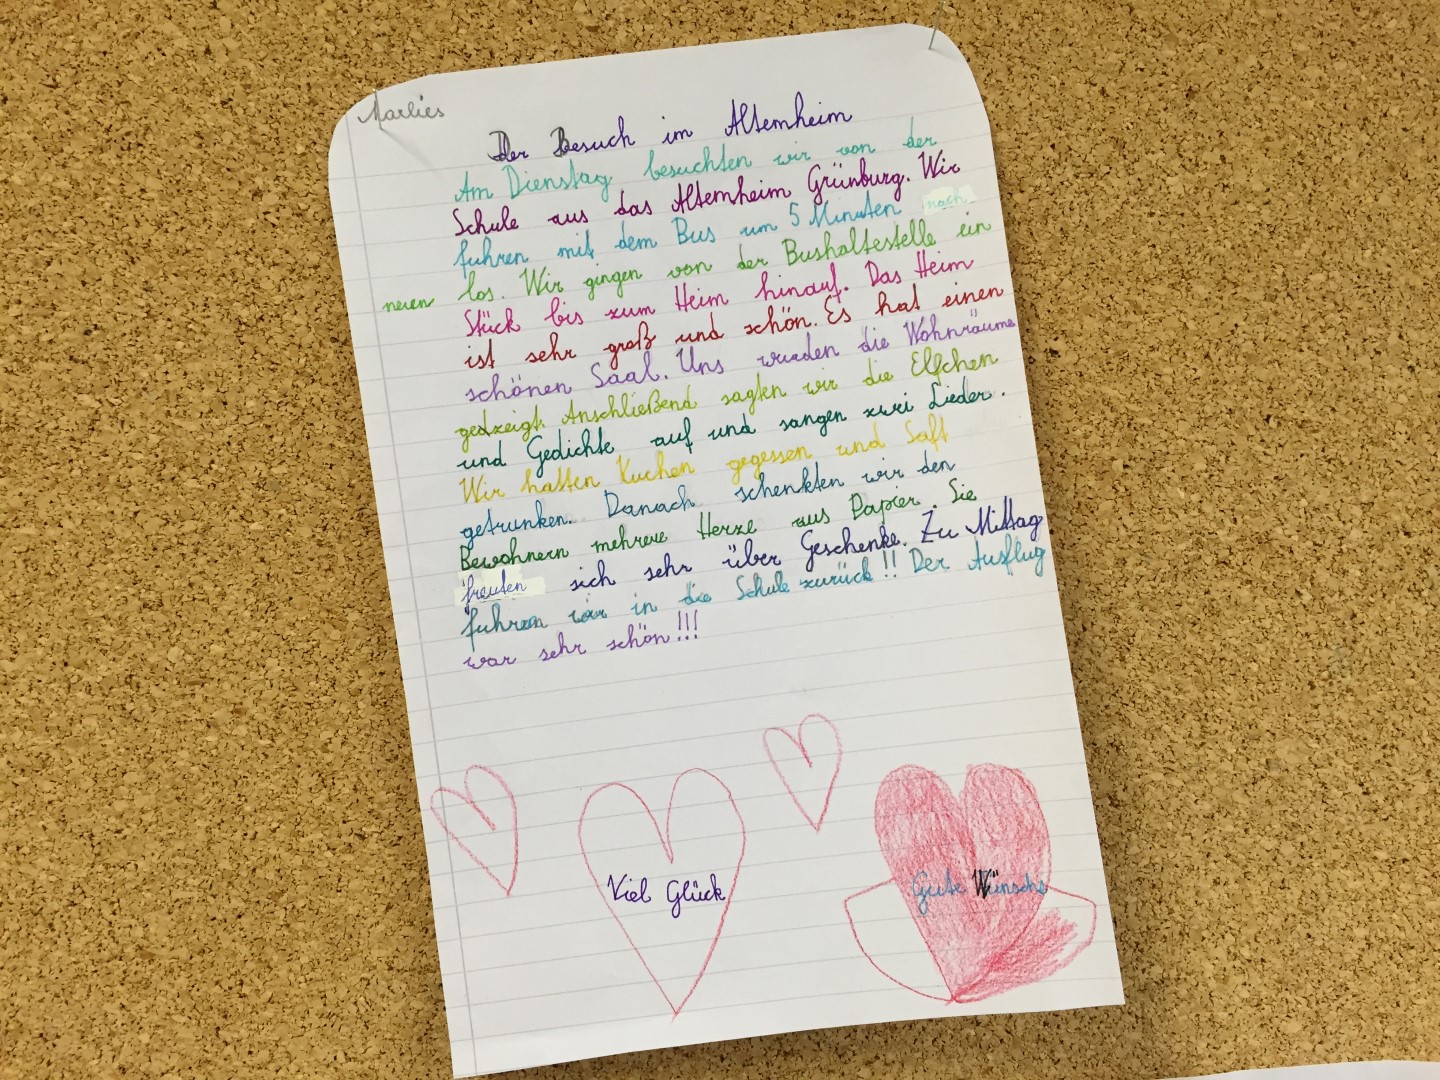 Marlies
Der Besuch im Altemheim
Am Dienstag besuchten wir von der
Schule aus das Altemheim Grünburg. Wir
fuhren mit dem Bus um 5 Minuten nach
neun los. Wir gingen von der Bushaltestelle ein
Stück bis zum Heim hinauf. Das Heim
ist sehr groß und schön. Es hat einen
schönen Saal. Uns wurden die Wohnräume
gezeigt. Anschließend sagten wir die Elfchen
und Gedichte auf und sangen zwei Lieder.
Wir hatten Kuchen gegessen und Saft
getrunken. Danach schenkten wir den
Bewohnern mehrere Herze aus Papier. Sie
freuten sich sehr über Geschenke. Zu Mittag
fuhren wir in die Schule zurück!! Der Ausflug
war sehr schön!!!
Viel Glück
Gute Wünsche